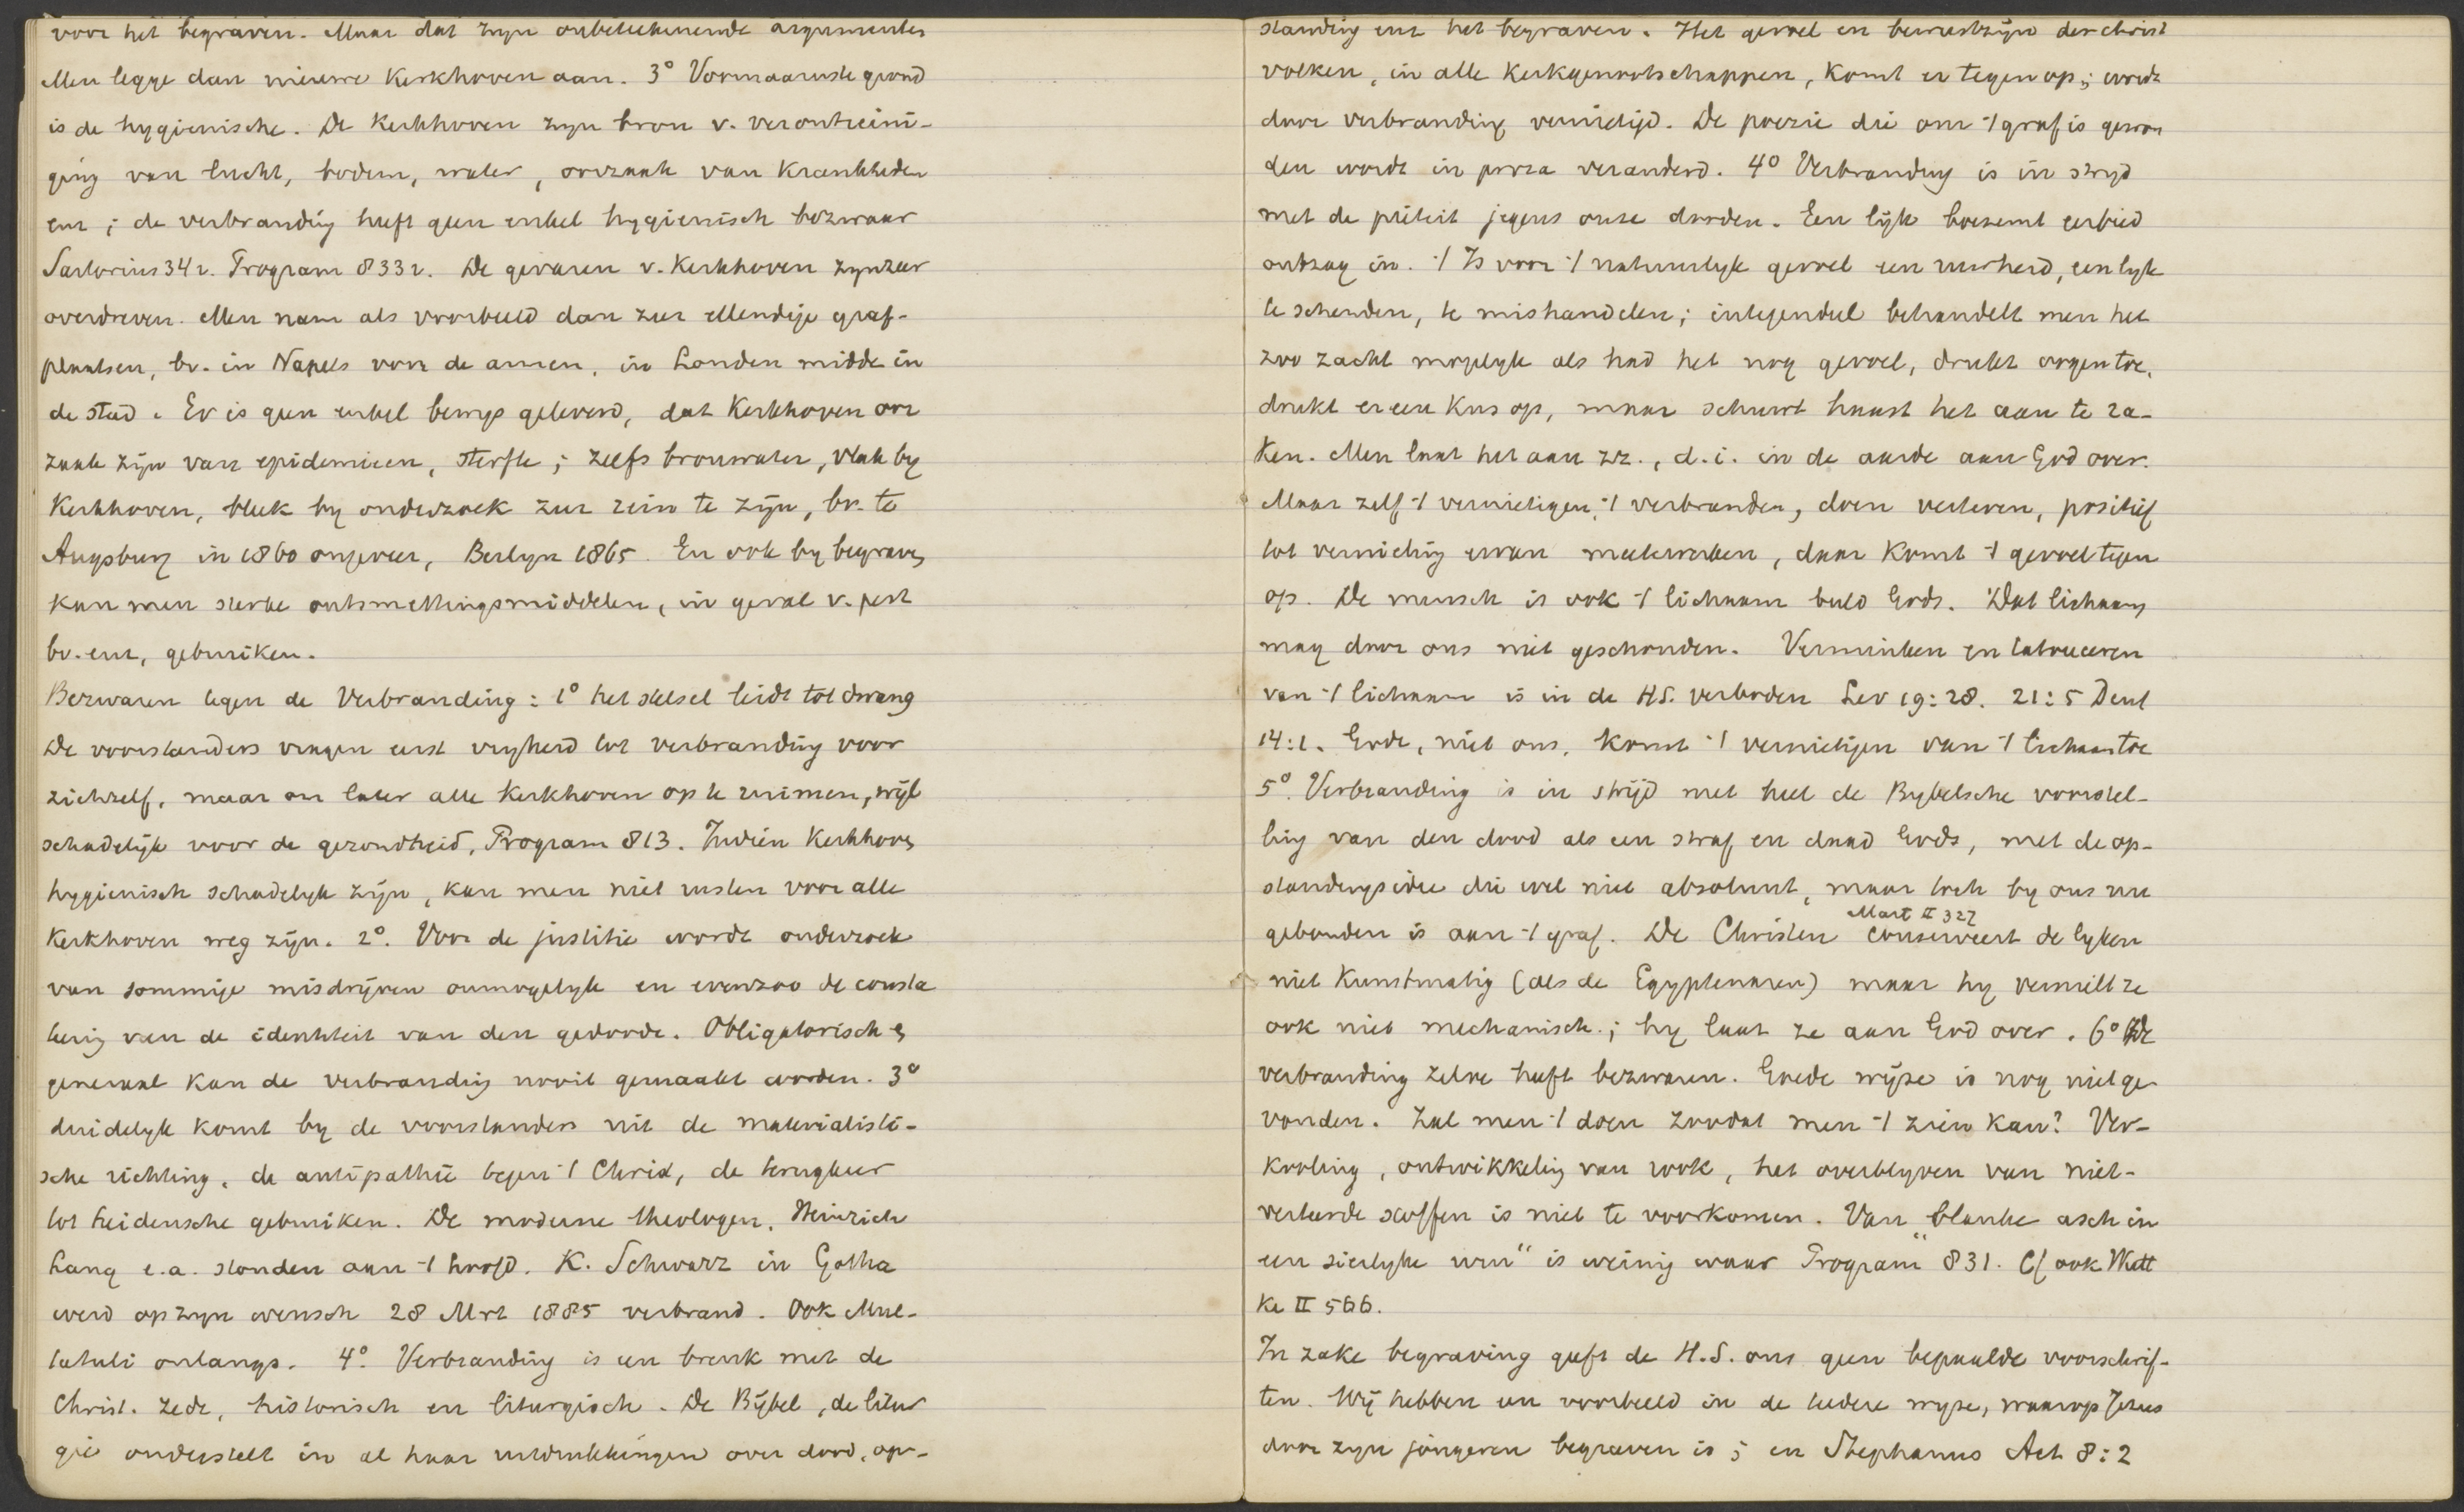 voor het begraven. Maar dat zyn onbeteekenende argumenten
Men legge dan nieuwe Kerkhoven aan. 3° Voornaamste grond
is de hygienische. De Kerkhoven zyn bron v. verontreini-
ging van lucht, bodem, water, oorzaak van Krankheden
enz; de verbranding heeft geen enkel hygienisch bezwaar
Sartorius 34 v. Program 833 v. De gevaren v. Kerkhoven zyn zeer
overdreven. Men nam als voorbeeld dan zeer ellendige graf-
plaatsen, bv. in Napels voor de armen, in Londen midde in
de stad. Er is geen enkel bewys geleverd, dat Kerkhoven oor
zaak zijn van epidemieen, sterfte; zelfs bronwater, vlak by
Kerkhoven, bleek by onderzoek zeer rein te zijn, bv. te
Augsburg in 1860 ongeveer, Berlyn 1865. En ook by begraven
kan men sterke ontsmettingsmiddelen, in geval v. pest
bv. enz, gebruiken.
Bezwaren tegen de Verbranding: 1° het stelsel leidt tot dwang
De voorstanders vragen eerst vryheid tot verbranding voor
zichzelf, maar om later alle Kerkhoven op te ruimen, wijl
schadelijk voor de gezondheid, Program 813. Indien Kerkhoven
hygienisch schadelyk zijn, kan men niet rusten voor alle
Kerkhoven weg zijn. 2°. Voor de justitie wordt onderzoek
van sommige misdrijven onmogelyk en evenzoo de consta
tering van de identiteit van den gedoode. Obligatorisch en
generaal kan de verbranding nooit gemaakt worden. 3°
duidelyk komt by de voorstanders uit de materialisti-
sche richting, de antipathie tegen 't Christ, de terugkeer
tot heidensche gebruiken. De moderne theologen, Heinrich
Lang e.a. stonden aan 't hoofd. K. Schwarz in Gotha
werd op zyn wensch 28 Mrt 1885 verbrand. Ook Mul-
tatuli onlangs. 4°. Verbranding is een breuk met de
Christ. zede, historisch en liturgisch. De Bijbel, de litur
gie onderstelt in al haar uitdrukkingen over dood, op-
standing enz het begraven. Het gevoel en bewustzijn der christ
volken, in alle Kerkgenootschappen, komt er tegen op; wordt
door verbranding vernietigd. De poezie die om 't graf is gewon
den wordt in proza veranderd. 4° Verbranding is in stryd
met de piëteit jegens onze dooden. Een lijk boezemt eerbied
ontzag in. 't Is voor 't natuurlyk gevoel een ruwheid, een lyk
te schenden, te mishandelen; integendeel behandelt men het
zoo zacht mogelyk als had het nog gevoel, drukt oogen toe,
drukt er een Kus op, maar schuwt haast het aan te ra-
ken. Men laat het aan zz., d.i. in de aarde aan God over.
Maar zelf 't vernietigen, 't verbranden, doen verteren, positief
tot vernieting ervan meewerken, daar Komt 't gevoel tegen
op. De mensch is ook 't lichaam beeld Gods. Dat lichaam
mag door ons niet geschonden. Verminken en tatoueeren
van 't lichaam is in de H.S. verboden Lev 19:28. 21:5 Deut
14:1. Gode, niet ons, Komt 't vernietigen van 't lichaam toe
5°. Verbranding is in strijd met heel de Bybelsche voorstel-
ling van den dood als een straf en daad Gods, met de op-
standingsidee die wel niet absoluut, maar toch by ons nu
gebonden is aan 't graf. De Christen conserveert de lyken
Mart II 327
niet Kunstmatig (als de Egyptenaren) maar hy vernielt ze
ook niet mechanisch; hy laat ze aan God over. 6° De
verbranding zelve heeft bezwaren. Goede wijze is nog niet ge
vonden. Zal men 't doen zoodat men 't zien kan? Ver-
kooling, ontwikkeling van rook, het overblyven van niet-
verteerde stoffen is niet te voorkomen. Van "blanke asch in
een sierlyke urn" is weinig waar Program 831. Cf ook Wutt
ke II 566.
In zake begraving geeft de H.S. ons geen bepaalde voorschrif-
ten. Wij hebben een voorbeeld in de teedere wyze, waarop Jezus
door zyn jongeren begraven is; en Stephanus Act 8:2